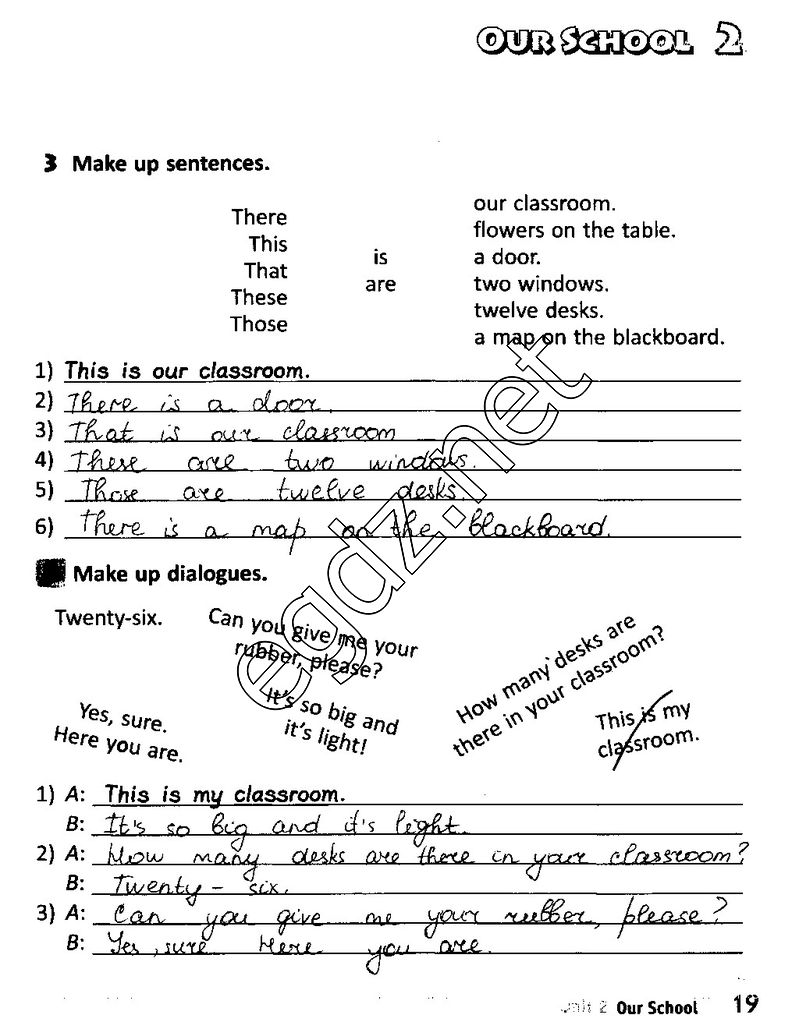 OUR SCHOOL 2
3 Make up sentences.
There
This
That
These
Those
is
are
our classroom.
flowers on the table.
a door.
two windows.
twelve desks.
a map on the blackboard.
1) This is our classroom.
2) There is a door.
3) That is our classroom
4) These are two windows.
5) Those are twelve desks.
6) There is a map on the blackboard.
Make up dialogues.
Twenty-six.
Can you give me your
rubber, please?
How many desks are
there in your classroom?
Yes, sure.
Here you are.
It's so big and
it's light!
This is my
classroom.
1) A: This is my classroom.
B: It's so big and it's light.
2) A: How many desks are there in your classroom?
B: Twenty-six.
3) A: Can you give me your rubber, please?
B: Yes, sure Here you are.
egdz.net
Unit 2 Our School 19